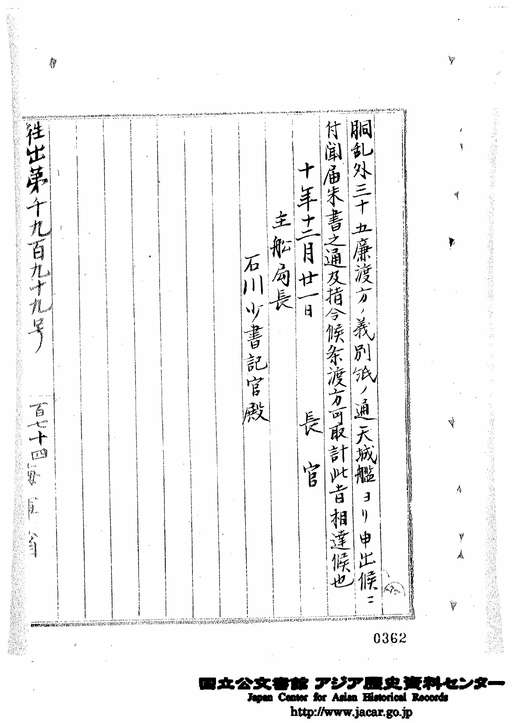 胴乱外三十五廉渡方ノ義別紙ノ通天城艦ヨリ申出候ニ
付聞届朱書之通及指令候条渡方可取計此旨相達候也
十年十二月廿一日 長官
主船局長
石川少書記官殿
往出第千九百九十九号
百七十四
0362
国立公文書館 アジア歴史資料センター
Japan Center for Asian Historical Records
http://www.jacar.go.jp